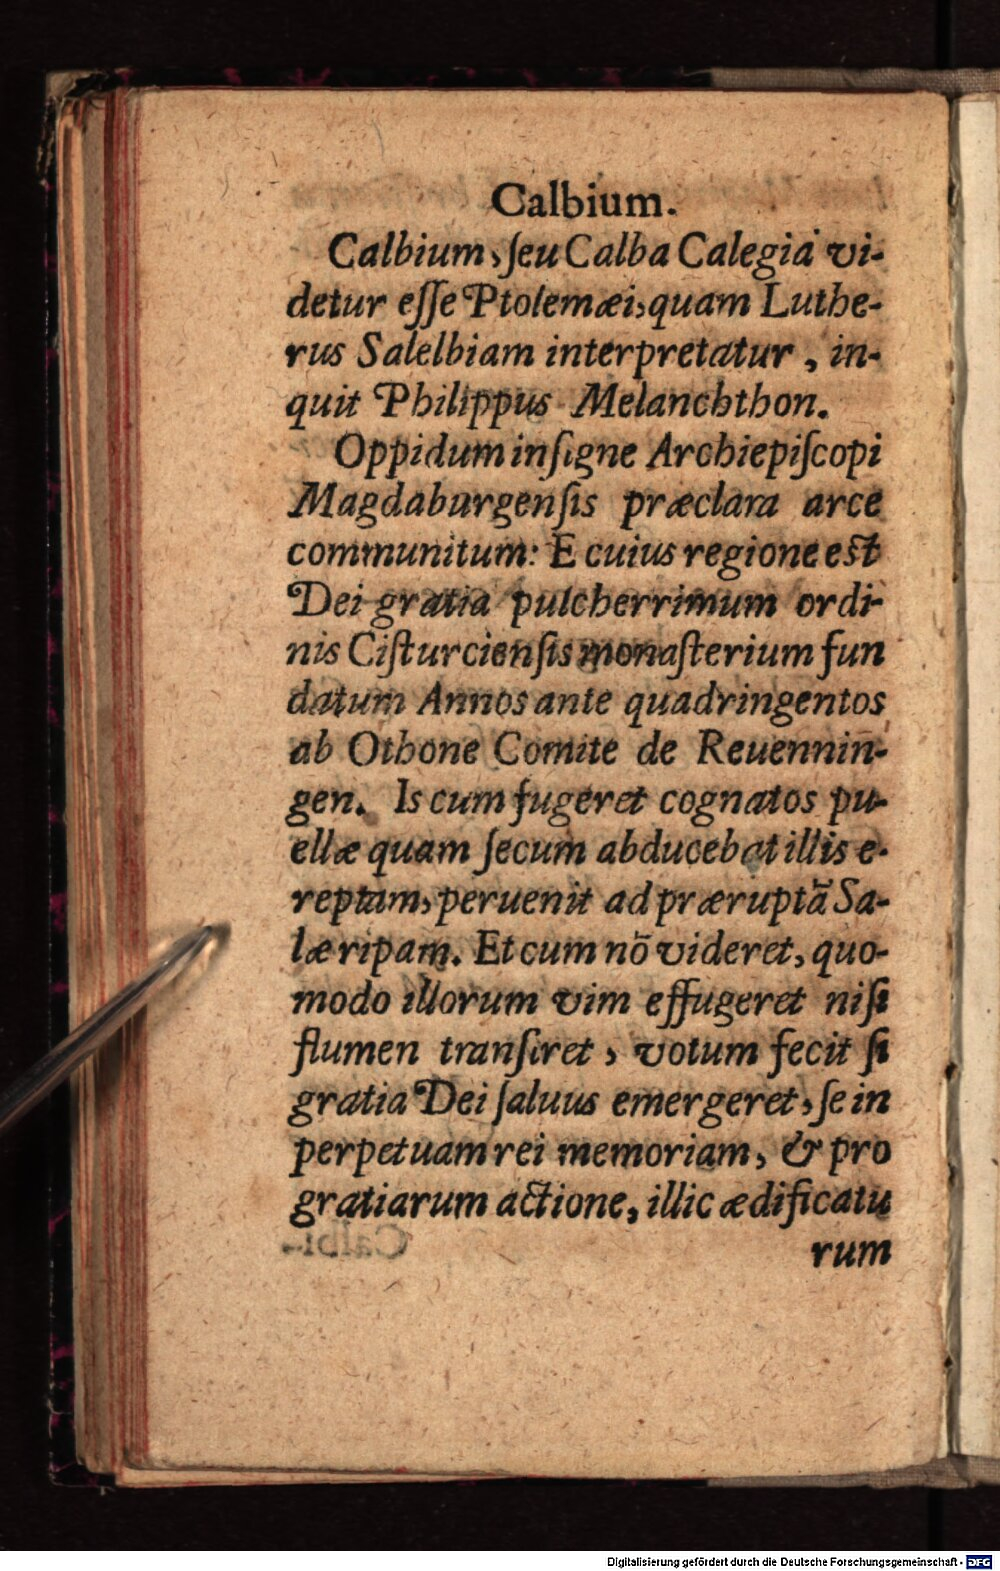 Calbium.
Calbium, ſeu Calba Calegia vi-
detur eſſe Ptolemæi, quam Luthe-
rus Salelbiam interpretatur, in-
quit Philippus Melanchthon.
Oppidum inſigne Archiepiſcopi
Magdaburgenſis præclara arce
communitum: E cuius regione eſt
Dei gratia pulcherrimum ordi-
nis Ciſturcienſis monaſterium fun
datum Annos ante quadringentos
ab Othone Comite de Reuennin-
gen. Is cum fugeret cognatos pu-
ellæ quam ſecum abducebat illis e-
reptam, peruenit ad præruptã Sa-
læ ripam. Et cum nõ videret, quo-
modo illorum vim effugeret niſi
flumen tranſiret, votum fecit ſi
gratia Dei ſaluus emergeret, ſe in
perpetuam rei memoriam, & pro
gratiarum actione, illic ædificatu
rum
Digitalisierung gefördert durch die Deutsche Forschungsgemeinschaft - DFG